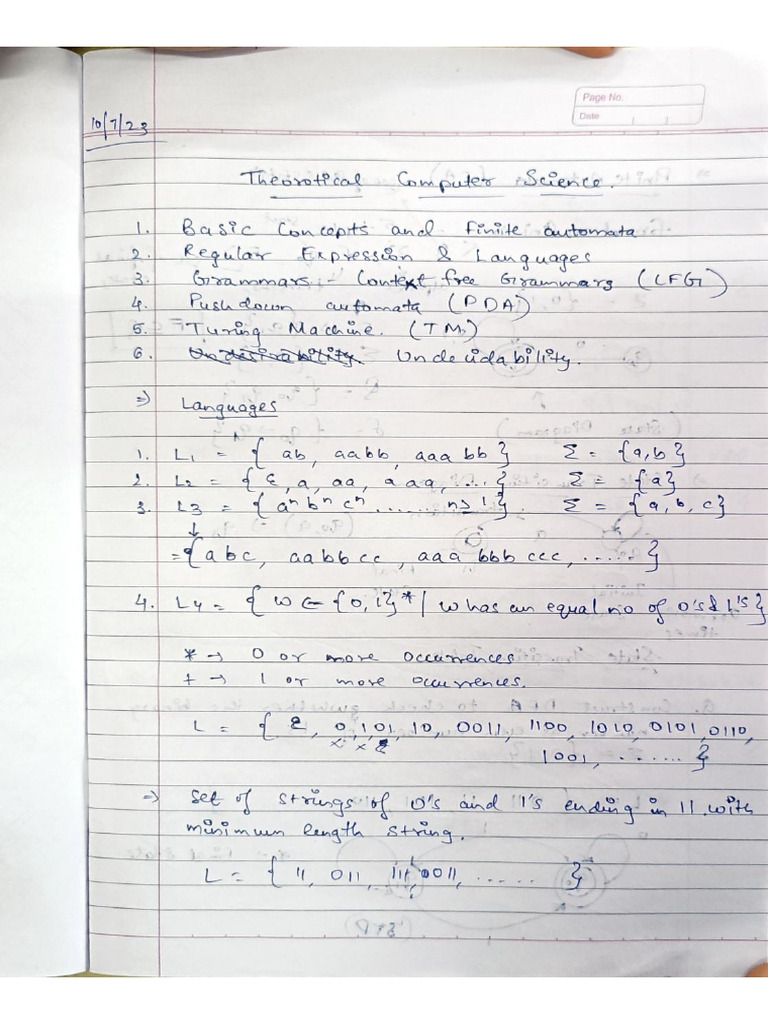 Page No.
Date
10/7/23
Theorotical Computer Science.
1. Basic Concepts and Finite automata
2. Regular Expression & Languages
3. Grammars - Context free Grammars (CFG)
4. Pushdown automata (PDA)
5. Turing Machine. (TM)
6. Undecidability.
⇒ Languages
1. L1 = { ab, aabb, aaabb} Σ = {a,b}
2. L2 = {ε, a, aa, aaa, ...} Σ = {a}
3. L3 = {aⁿbⁿcⁿ ...... n≥1}. Σ = {a, b, c}
↓
={abc, aabbcc, aaabbbccc, .....}
4. L4 = {w ∈ {0,1}* | w has an equal no of 0's & 1's}
* → 0 or more occurrences
+ → 1 or more occurrences.
L = { ε, 0,1,01, 10, 0011, 1100, 1010, 0101, 0110,
x x
1001, ...... }
⇒ Set of strings of 0's and 1's ending in 11. with
minimum length string.
L = { 11, 011, 111, 0011, ..... }